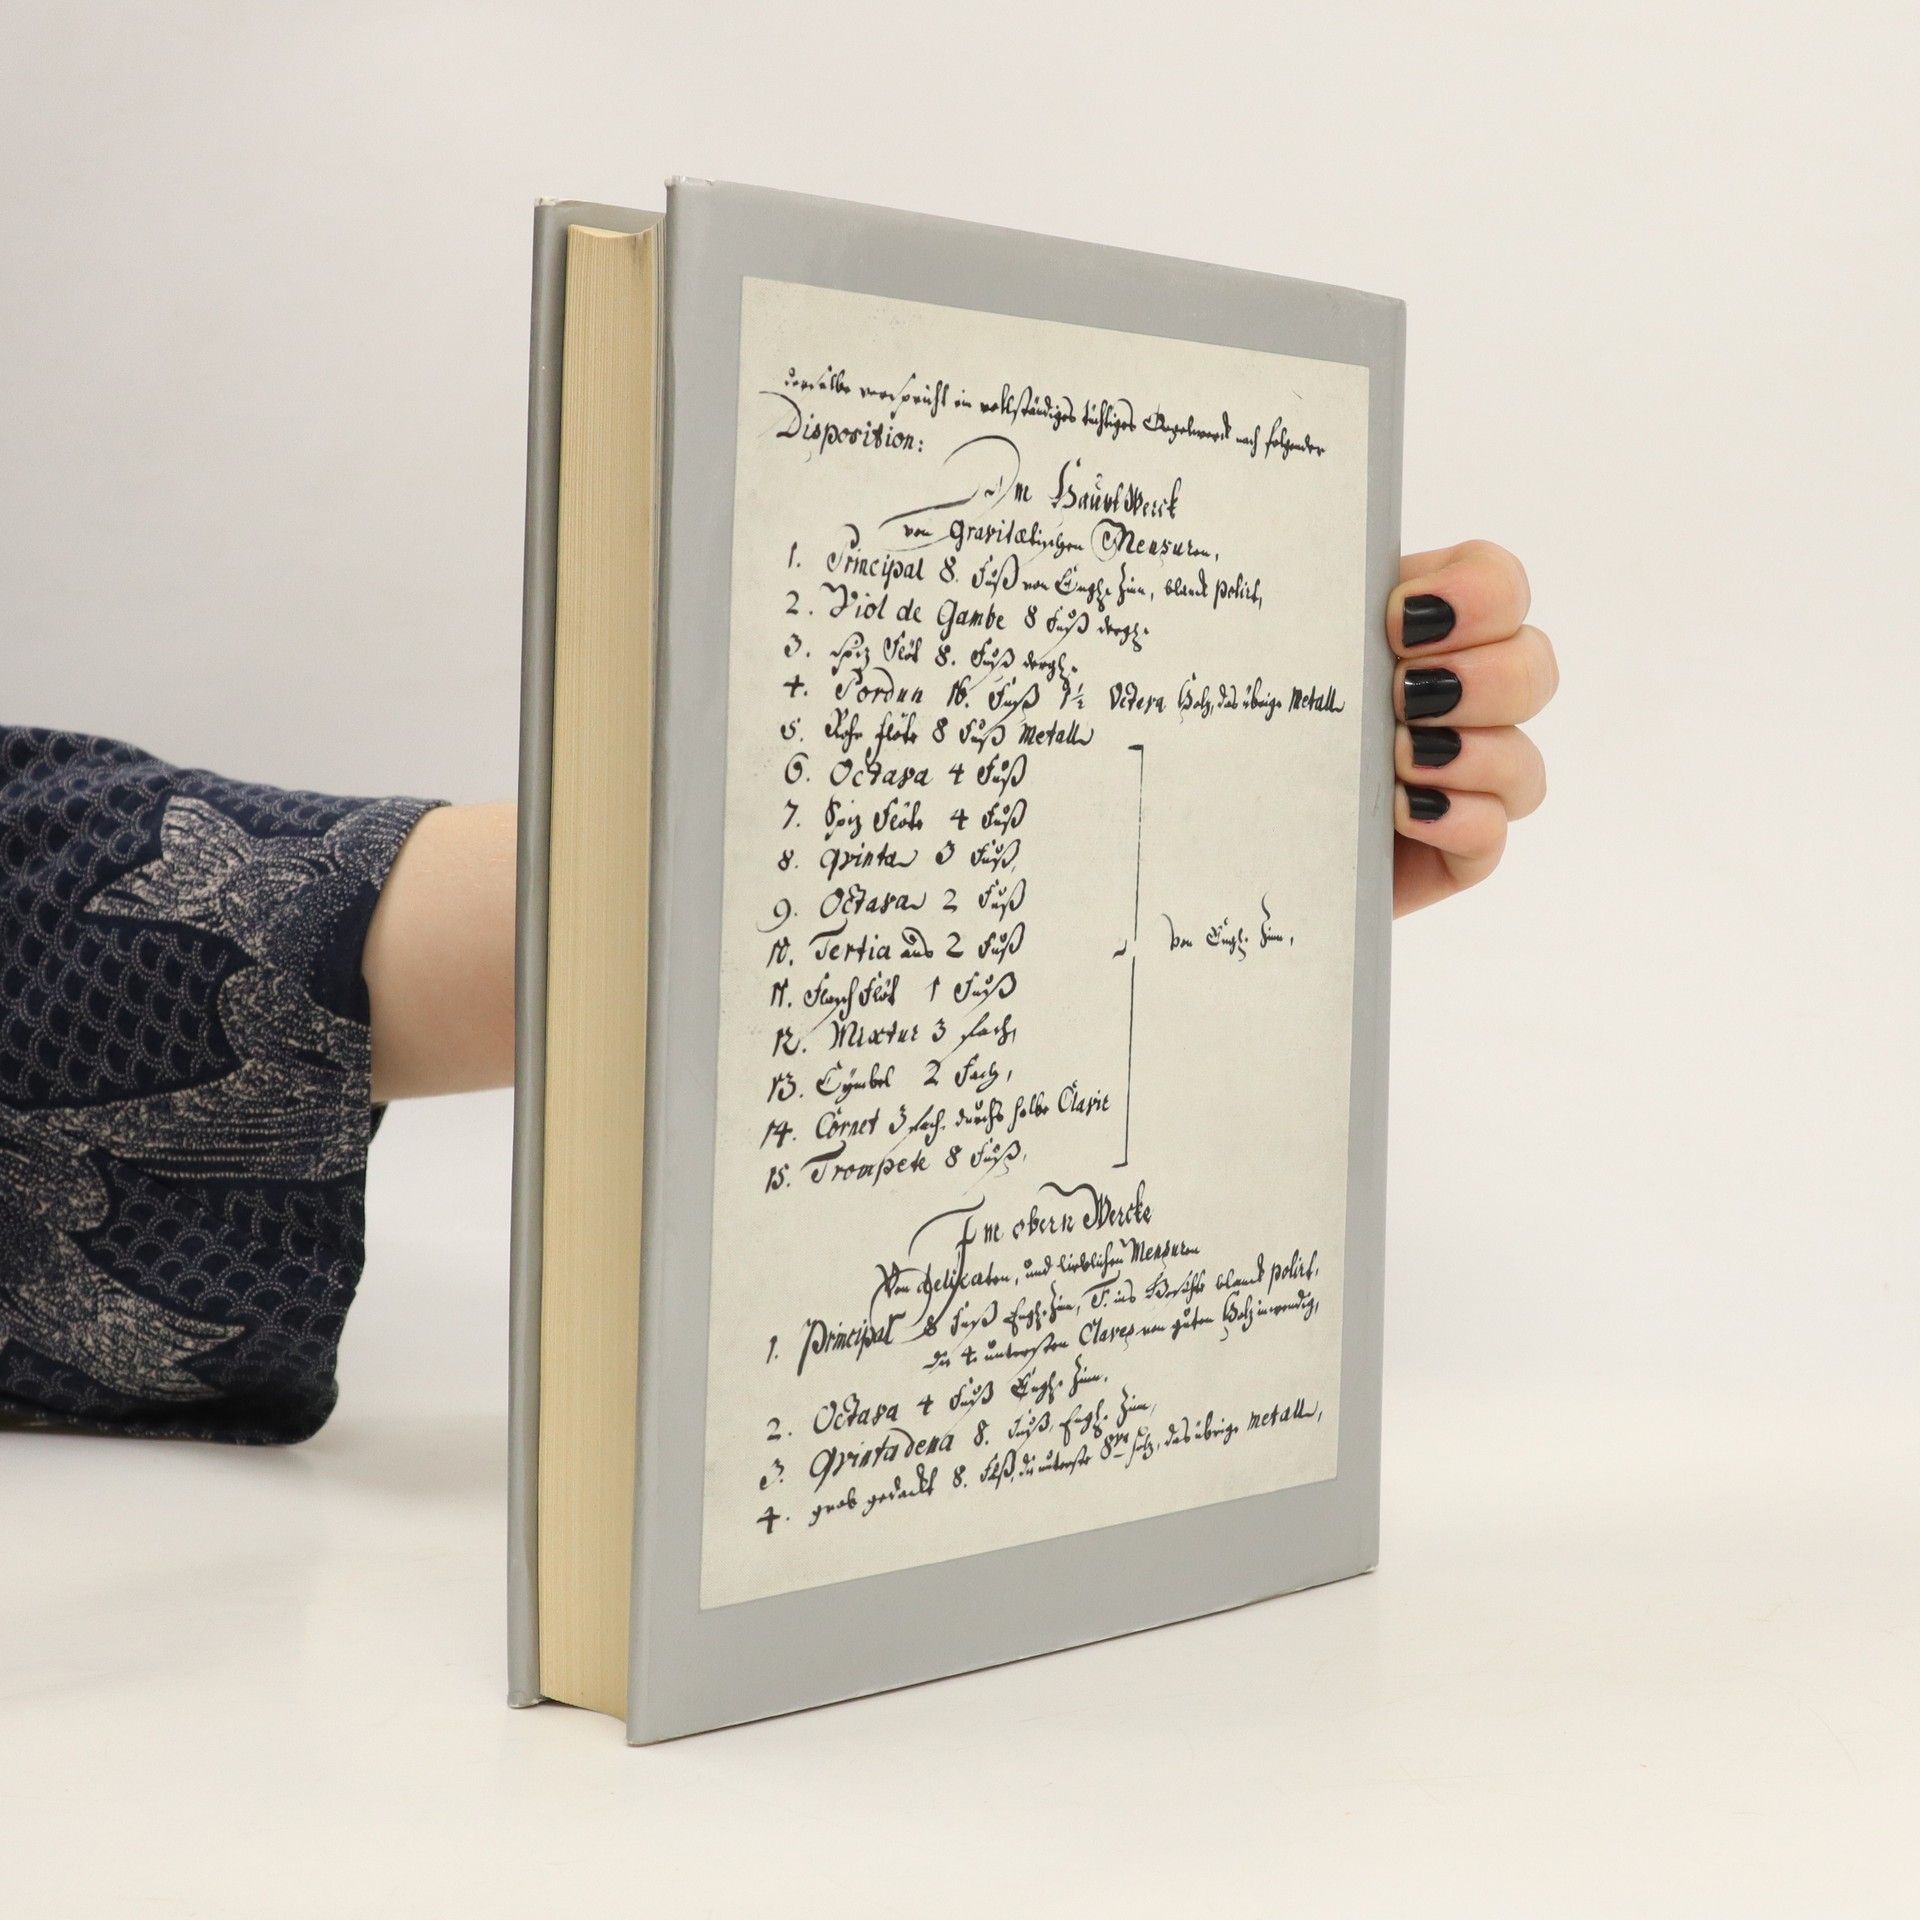 derselbe verspricht ein vollständiges tüchtiges Orgelwerck nach folgender
Disposition:
Im HaubtWerck
von gravitætischen Mensuren,
1. Principal 8. Fuß von Engl. Zinn, blanck polirt,
2. Viol de Gambe 8 Fuß dergl.
3. Spiz Flöt 8. Fuß dergl.
4. Pordun 16. Fuß 1½ Octava Holz, das übrige Metall
5. Rohr flöte 8 Fuß Metall
6. Octava 4 Fuß
7. Spiz Flöte 4 Fuß
8. Qvinta 3 Fuß,
9. Octava 2 Fuß
von Engl. Zinn,
10. Tertia aus 2 Fuß
11. FlaschFlöt 1 Fuß
12. Mixtur 3 fach,
13. Cÿmbel 2 Fach,
14. Cornet 3 fach. durchs halbe Clavir
15. Trompete 8 Fuß,
Im obern Wercke
Von delikaten, und lieblichen Mensuren
1. Principal 8 Fuß Engl. Zinn, ins Gesichte blanck polirt,
die 4. untersten Claves von guten Holz inwendig,
2. Octava 4 Fuß Engl. Zinn.
3. Qvintadena 8. Fuß, Engl. Zinn,
4. grob gedackt 8. Fuß, die unterste 8va Holz, das übrige Metall,